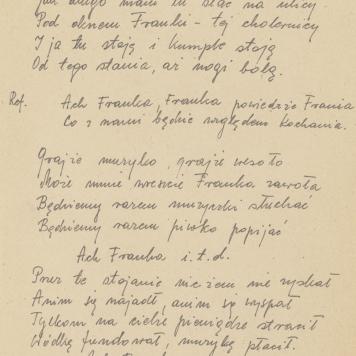 Jak długo mam tu stać na ulicy
Pod oknem Franki - tej cholernicy
I ja tu stoję i kumple stoją
Od tego stania, aż nogi bolą.
Ref. Ach Franka, Franka powiedzże Frania
Co z nami będzie względem kochania.
Grajże muzyko, grajże wesoło
Może mnie wreszcie Franka zawoła
Będziemy razem muzyczki słuchać
Będziemy razem piwko popijać
Ach Franka i.t.d.
Przez to stojanie nic żem nie zyskał
Anim się najadł, anim się wyspał
Tylkom na ciebie pieniądze stracił
Wódkę fundował, muzykę płacił.